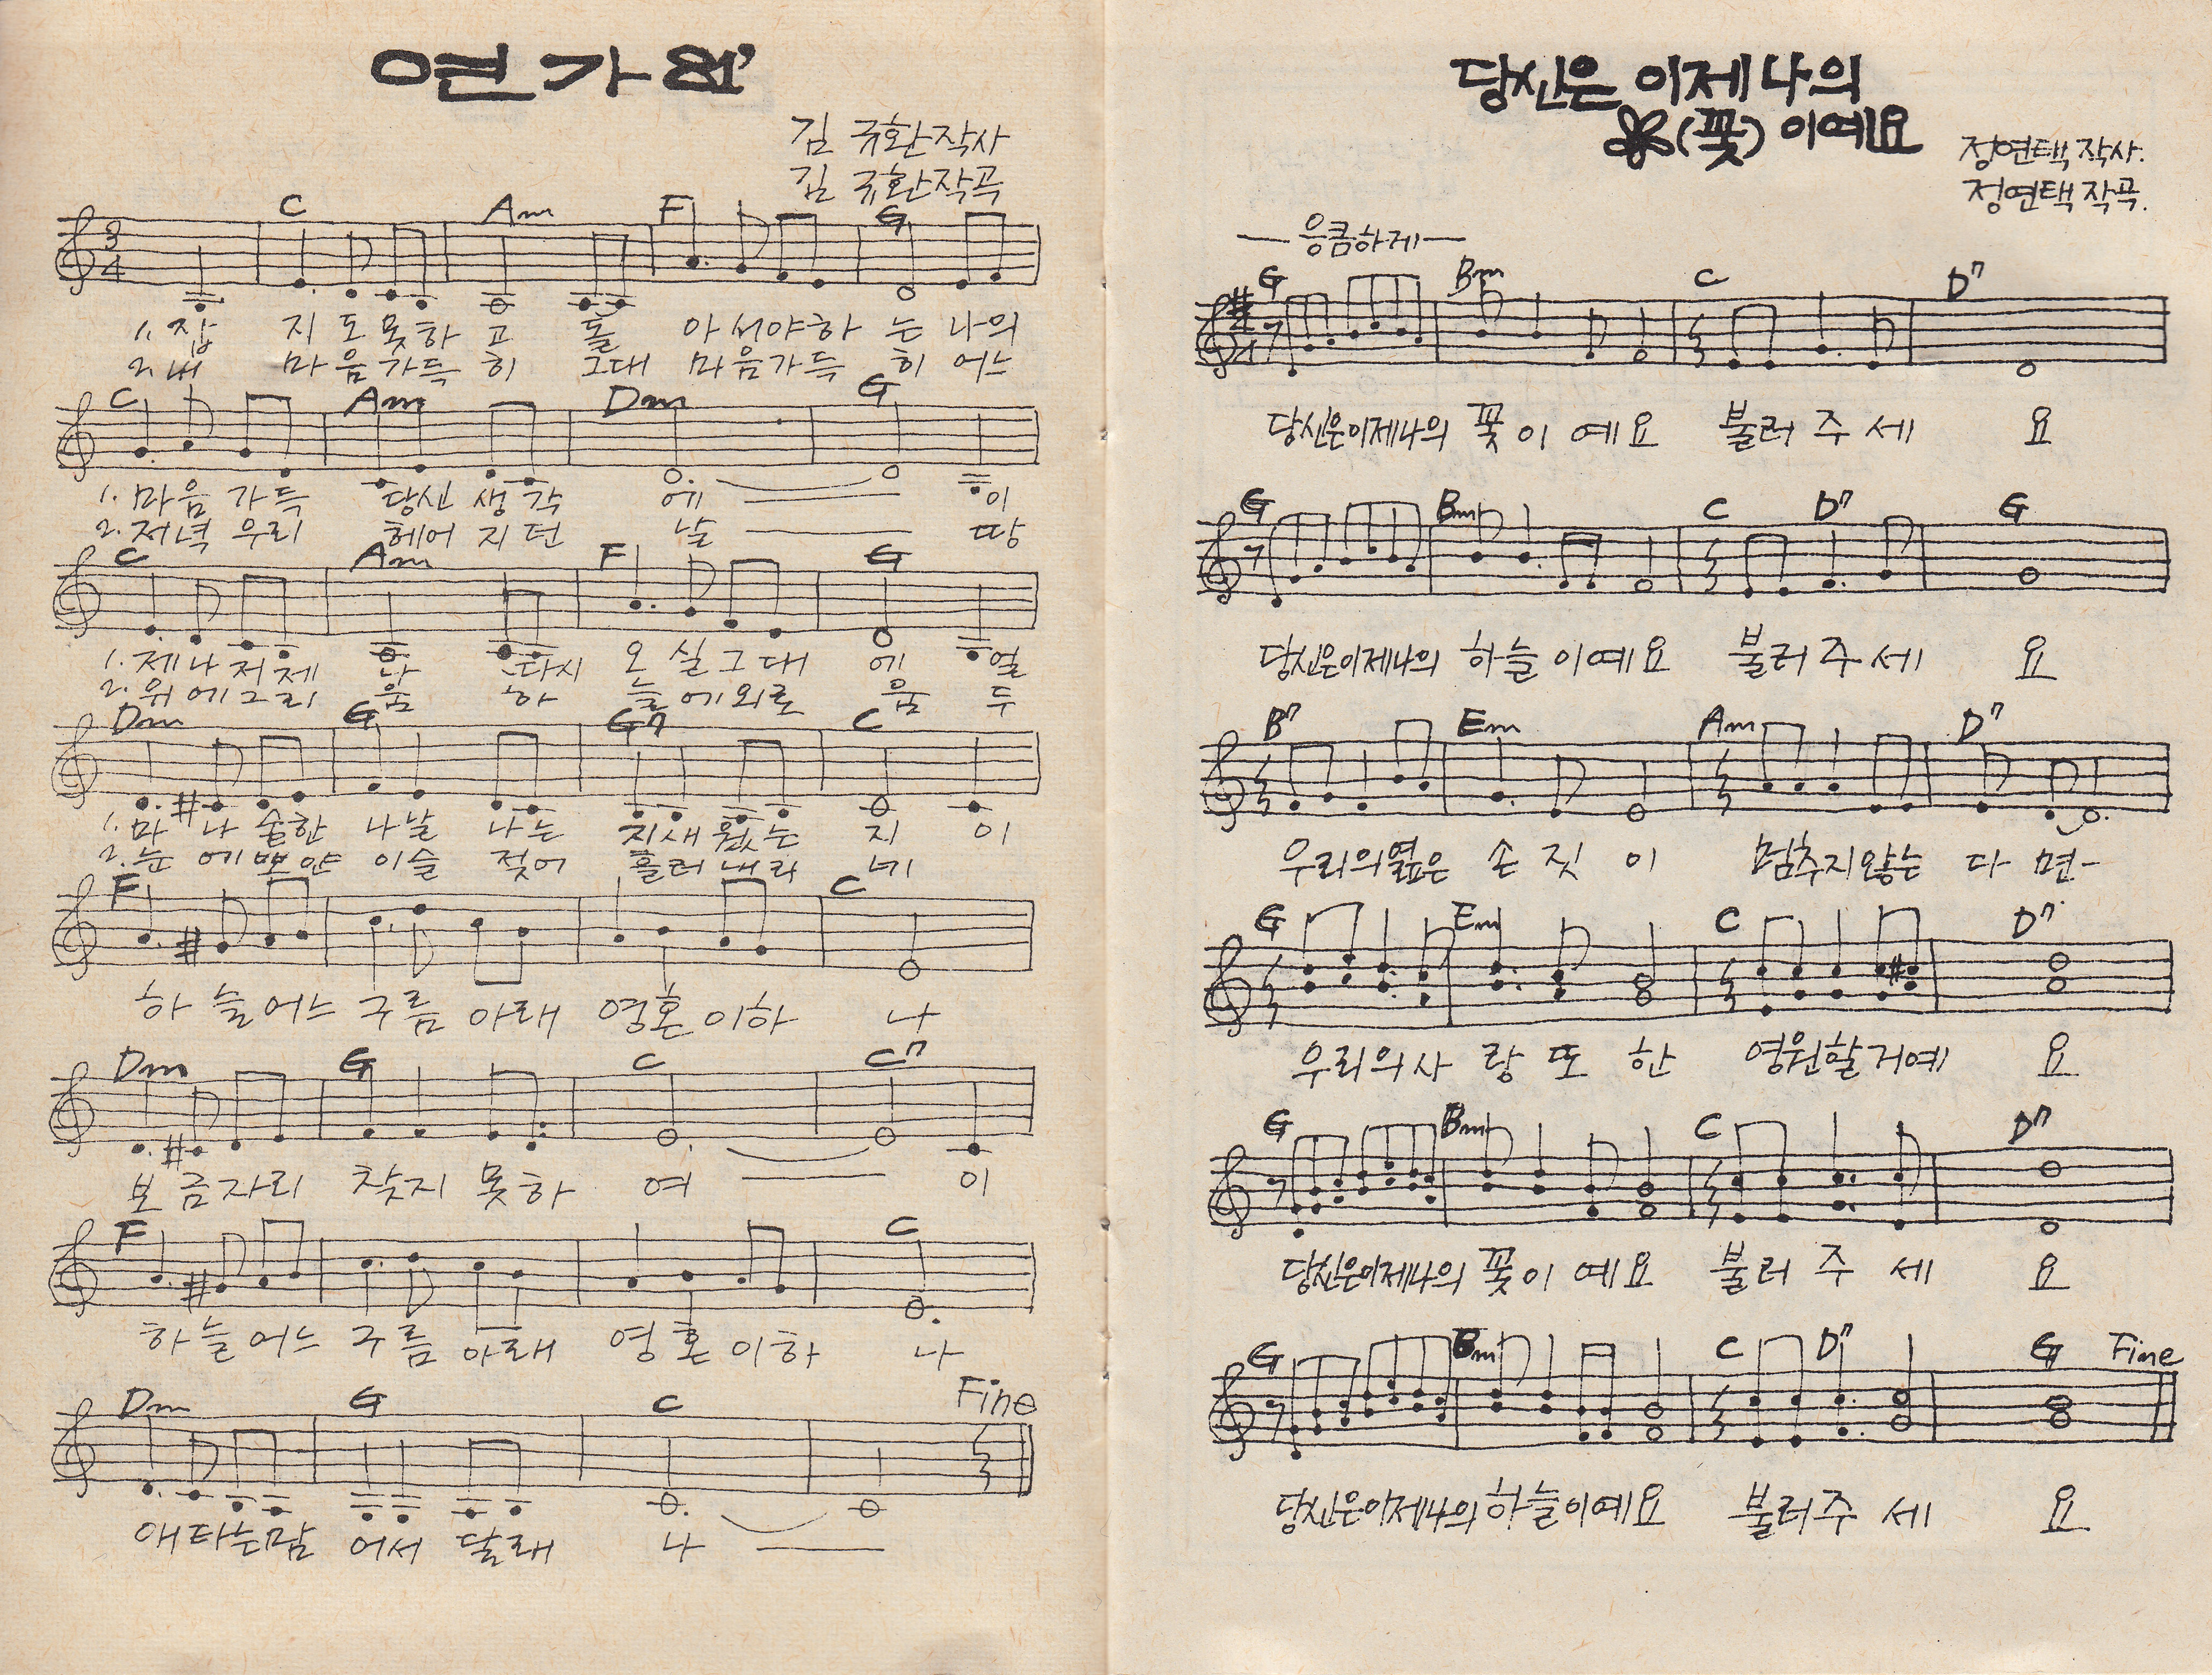 연가
김 규환 작사
김 규환 작곡
3
4
C Am F G
1. 잡 지 도 못 하 고 돌 아 서 야 하 는 나 의
2. 내 마 음 가 득 히 그대 마 음 가 득 히 어 느
C Am Dm G
1. 마 음 가 득 당신 생 각 에 이
2. 저 녁 우 리 헤어 지 던 날 땅
C Am F G
1. 제 나 저 제 나 다시 오 실 그 대 에 얼
2. 위 에 그 리 움 하 늘 에 외 로 움 두
Dm G G7 C
1. 마 나 숱한 나 날 나 는 지 새 웠 는 지 이
2. 눈 에 뽀 얀 이 슬 젖 어 흘 러 내 리 네
F C
하 늘 어 느 구 름 아 래 영 혼 이 하 나
Dm G C C7
보 금 자 리 찾 지 못 하 여 이
F C
하 늘 어 느 구 름 아 래 영 혼 이 하 나
Dm G C Fine
애 타 는 맘 어 서 달 래 나
당신은 이제 나의
(꽃) 이예요
정연택 작사.
정연택 작곡.
— 응큼하게 —
G Bm C D7
당신은이제나의 꽃 이 예 요 불 러 주 세 요
G Bm C D7 G
당신은이제나의 하 늘 이 예 요 불 러 주 세 요
B7 Em Am D7
우 리 의 엷은 손 짓 이 멈추지않는 다 면-
G Em C D7
우 리 의 사 랑 또 한 영원할거예 요
G Bm C D7
당신은이제나의 꽃 이 예 요 불 러 주 세 요
G Bm C D7 G Fine
당신은이제나의 하 늘 이 예 요 불 러 주 세 요